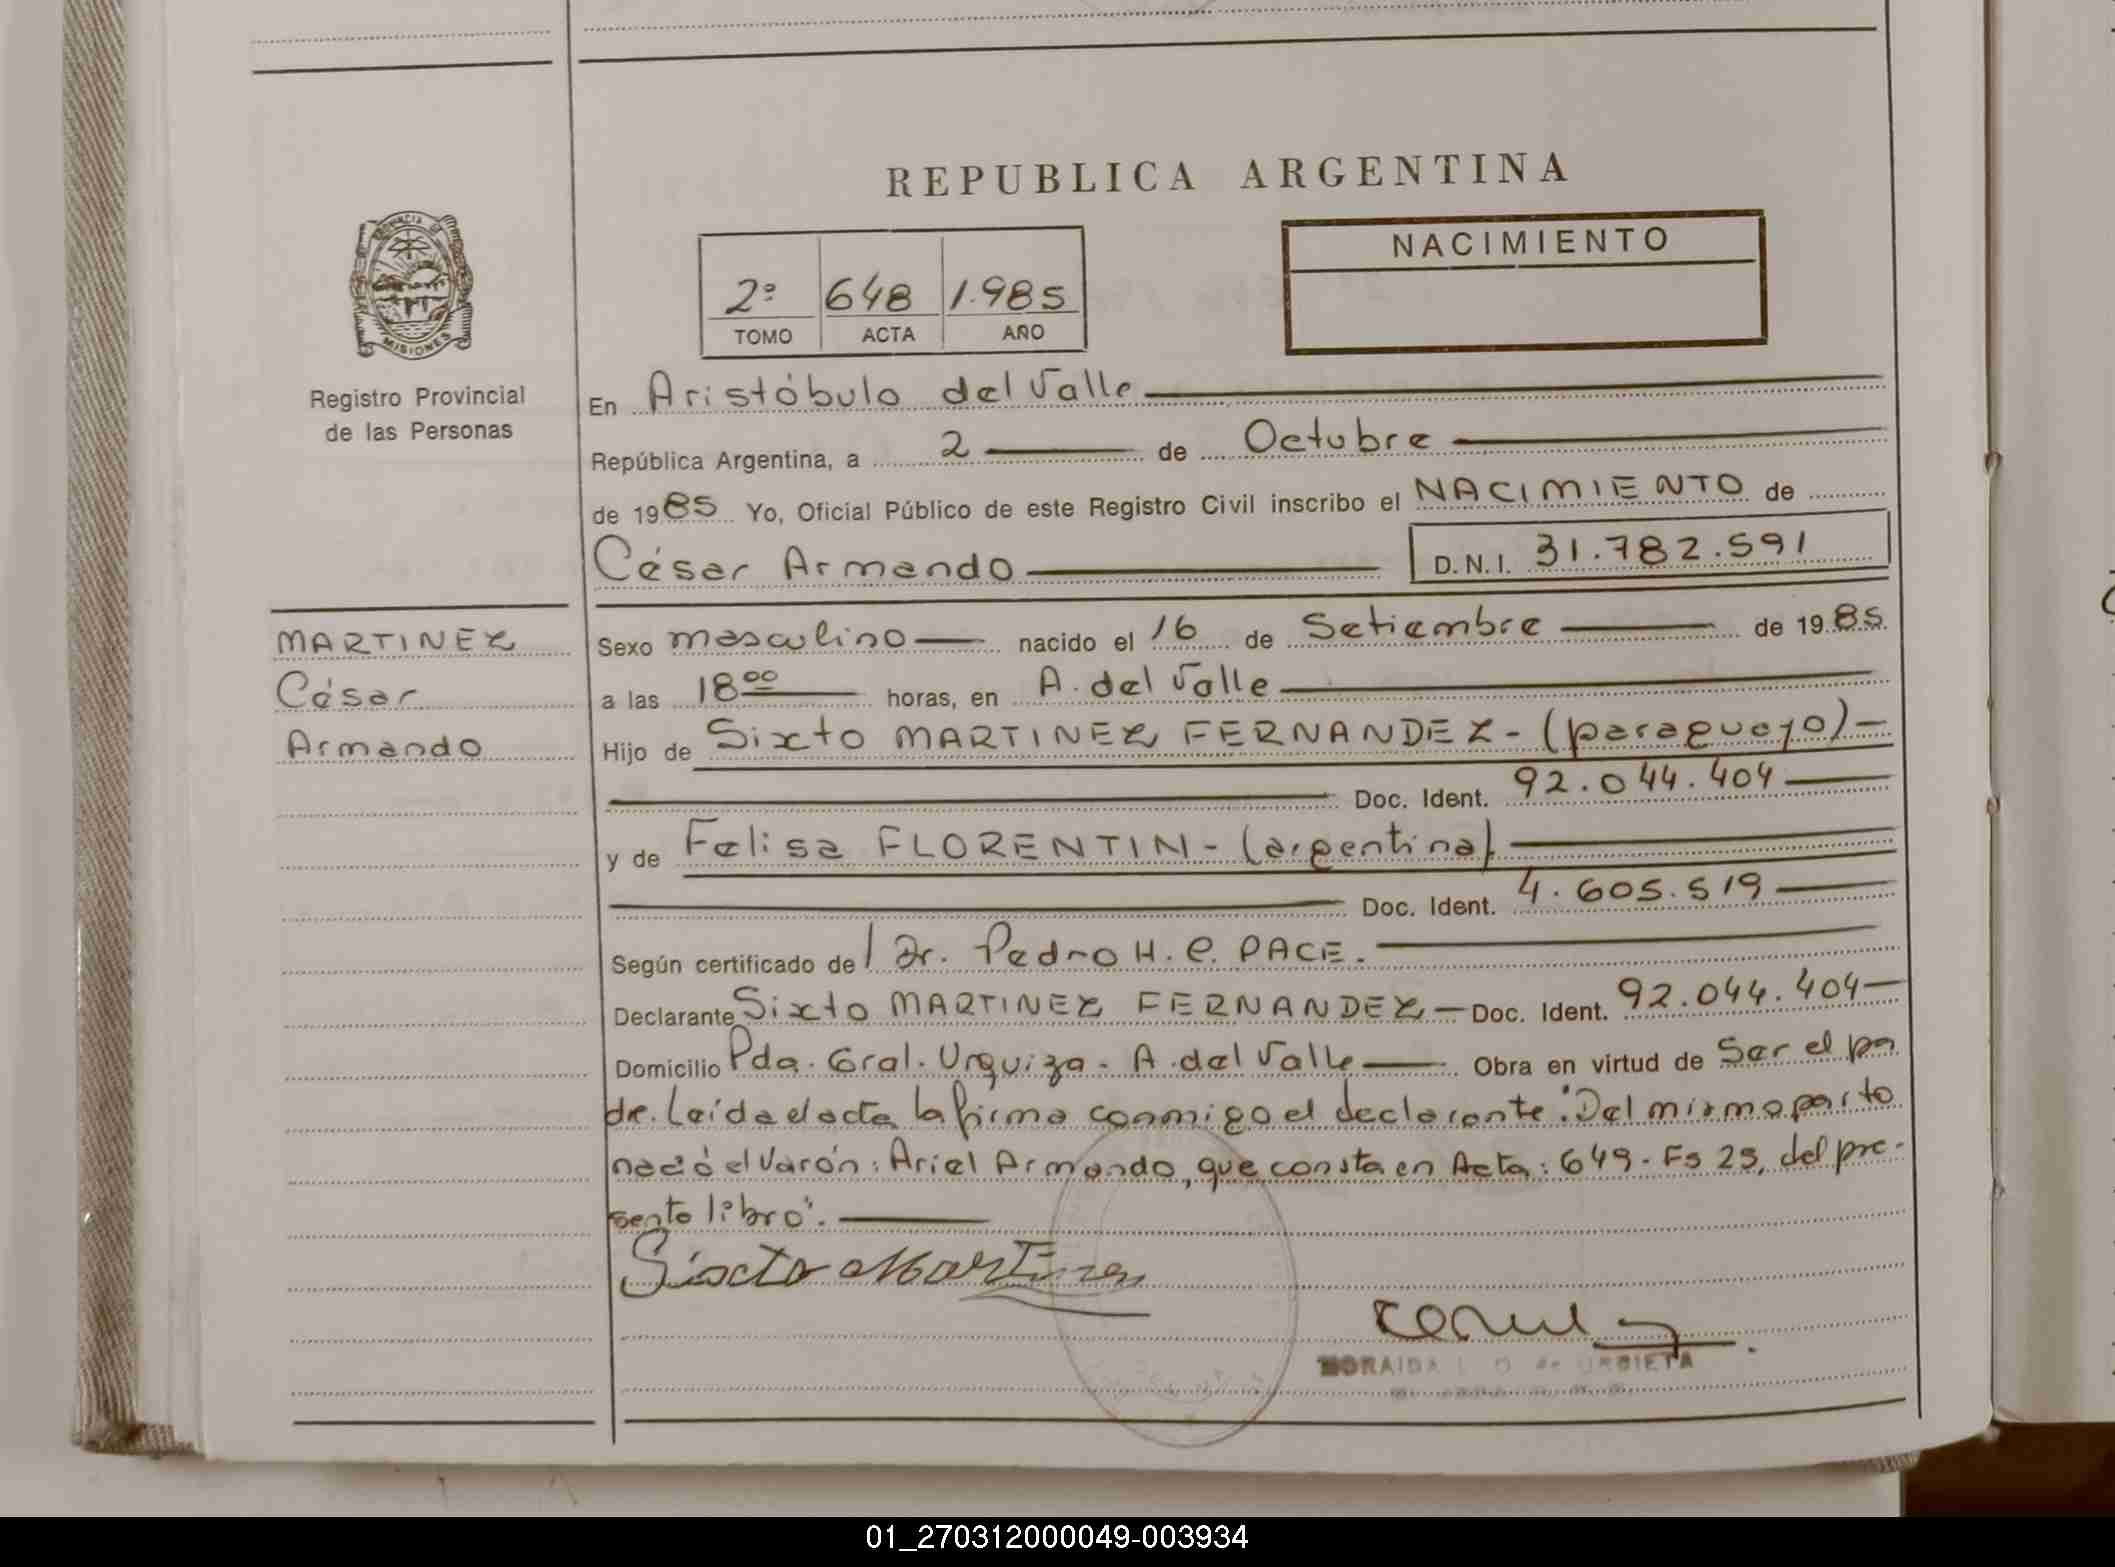 REPUBLICA ARGENTINA
NACIMIENTO
2º 648 1.985
TOMO ACTA AÑO
PROVINCIA DE
MISIONES
Registro Provincial
de las Personas
En Aristóbulo del Valle
República Argentina, a 2 de Octubre
de 1985 Yo, Oficial Público de este Registro Civil inscribo el NACIMIENTO de
César Armando D.N.I. 31.782.591
MARTINEZ
César
Armando
Sexo masculino nacido el 16 de Setiembre de 1985
a las 18 00 horas, en A. del Valle
Hijo de Sixto MARTINEZ FERNANDEZ - (paraguayo) -
Doc. Ident. 92.044.404
y de Felisa FLORENTIN - (argentina)
Doc. Ident. 4.605.519
Según certificado de l Dr. Pedro H. C. PACE.
Declarante Sixto MARTINEZ FERNANDEZ - Doc. Ident. 92.044.404
Domicilio Pda. Gral. Urquiza - A. del Valle Obra en virtud de Ser el pa
dre. Leída el acta la firma conmigo el declarante. "Del mismo parto
nació el varón: Ariel Armando, que consta en Acta: 649 - Fs 25, del pre-
sente libro".
Sixto Martinez
ORAIDA L. O. de URBIETA
01_270312000049-003934